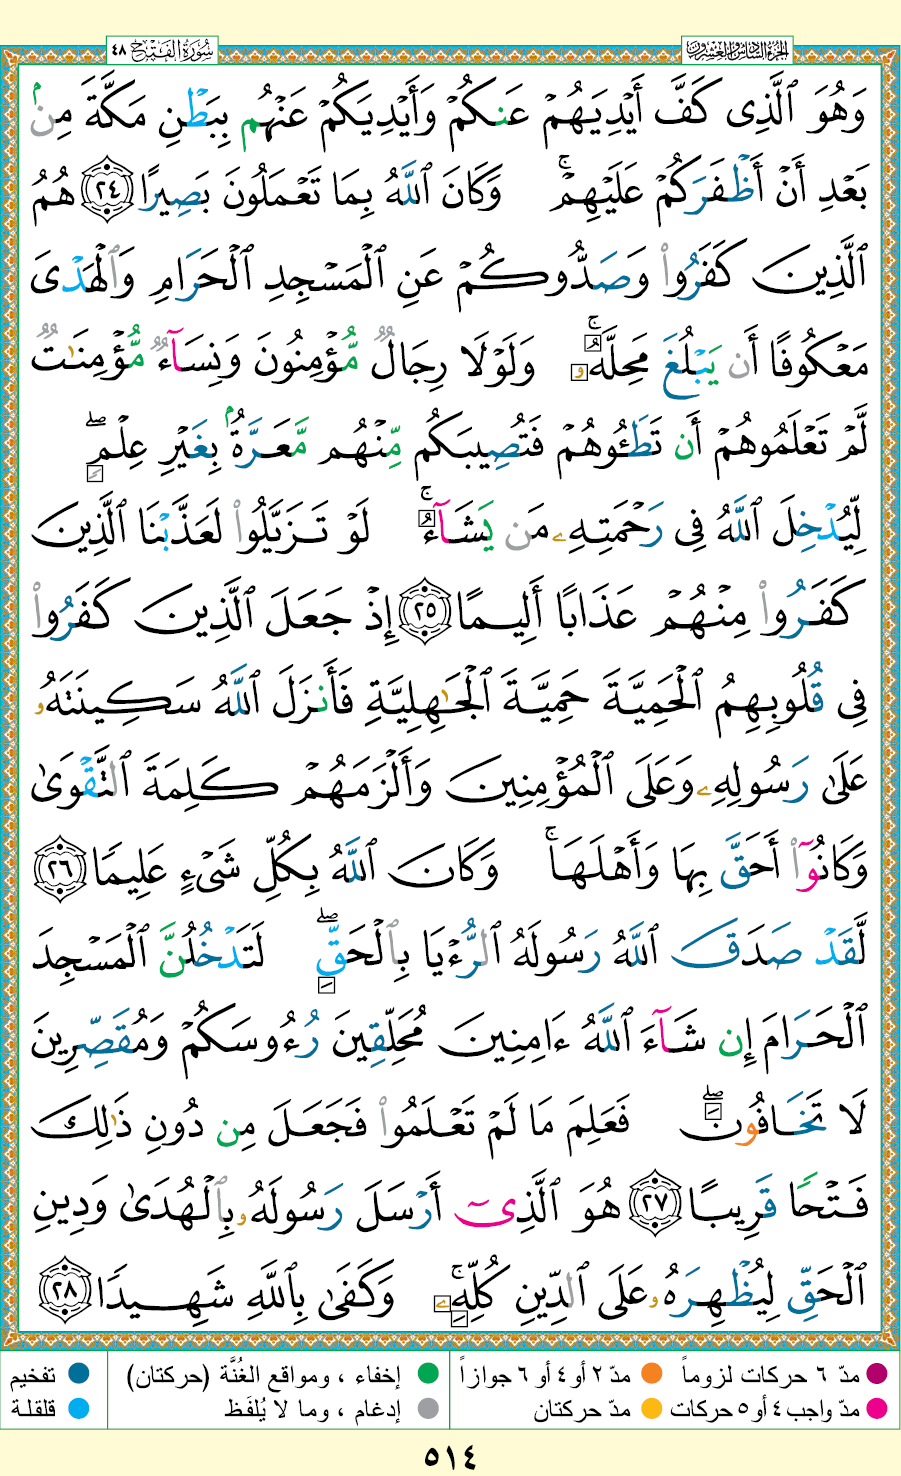 سُورَةُ الْفَتْحِ ٤٨
الجزء السادس والعشرون
وَهُوَ ٱلَّذِى كَفَّ أَيْدِيَهُمْ عَنكُمْ وَأَيْدِيَكُمْ عَنْهُم بِبَطْنِ مَكَّةَ مِنۢ
بَعْدِ أَنْ أَظْفَرَكُمْ عَلَيْهِمْ ۚ وَكَانَ ٱللَّهُ بِمَا تَعْمَلُونَ بَصِيرًا ٢٤ هُمُ
ٱلَّذِينَ كَفَرُوا۟ وَصَدُّوكُمْ عَنِ ٱلْمَسْجِدِ ٱلْحَرَامِ وَٱلْهَدْىَ
مَعْكُوفًا أَن يَبْلُغَ مَحِلَّهُۥ ۚ وَلَوْلَا رِجَالٌ مُّؤْمِنُونَ وَنِسَآءٌ مُّؤْمِنَـٰتٌ
لَّمْ تَعْلَمُوهُمْ أَن تَطَـُٔوهُمْ فَتُصِيبَكُم مِّنْهُم مَّعَرَّةٌۢ بِغَيْرِ عِلْمٍ ۖ
لِّيُدْخِلَ ٱللَّهُ فِى رَحْمَتِهِۦ مَن يَشَآءُ ۚ لَوْ تَزَيَّلُوا۟ لَعَذَّبْنَا ٱلَّذِينَ
كَفَرُوا۟ مِنْهُمْ عَذَابًا أَلِيمًا ٢٥ إِذْ جَعَلَ ٱلَّذِينَ كَفَرُوا۟
فِى قُلُوبِهِمُ ٱلْحَمِيَّةَ حَمِيَّةَ ٱلْجَـٰهِلِيَّةِ فَأَنزَلَ ٱللَّهُ سَكِينَتَهُۥ
عَلَىٰ رَسُولِهِۦ وَعَلَى ٱلْمُؤْمِنِينَ وَأَلْزَمَهُمْ كَلِمَةَ ٱلتَّقْوَىٰ
وَكَانُوٓا۟ أَحَقَّ بِهَا وَأَهْلَهَا ۚ وَكَانَ ٱللَّهُ بِكُلِّ شَىْءٍ عَلِيمًا ٢٦
لَّقَدْ صَدَقَ ٱللَّهُ رَسُولَهُ ٱلرُّءْيَا بِٱلْحَقِّ ۖ لَتَدْخُلُنَّ ٱلْمَسْجِدَ
ٱلْحَرَامَ إِن شَآءَ ٱللَّهُ ءَامِنِينَ مُحَلِّقِينَ رُءُوسَكُمْ وَمُقَصِّرِينَ
لَا تَخَافُونَ ۖ فَعَلِمَ مَا لَمْ تَعْلَمُوا۟ فَجَعَلَ مِن دُونِ ذَٰلِكَ
فَتْحًا قَرِيبًا ٢٧ هُوَ ٱلَّذِىٓ أَرْسَلَ رَسُولَهُۥ بِٱلْهُدَىٰ وَدِينِ
ٱلْحَقِّ لِيُظْهِرَهُۥ عَلَى ٱلدِّينِ كُلِّهِۦ ۚ وَكَفَىٰ بِٱللَّهِ شَهِيدًا ٢٨
مدّ ٦ حركات لزوماً مدّ ٢ أو ٤ أو ٦ جوازاً إخفاء ، ومواقع الغُنَّة (حركتان) تفخيم
مدّ واجب ٤ أو ٥ حركات مدّ حركتان إدغام ، وما لا يُلفَظ قلقلة
٥١٤